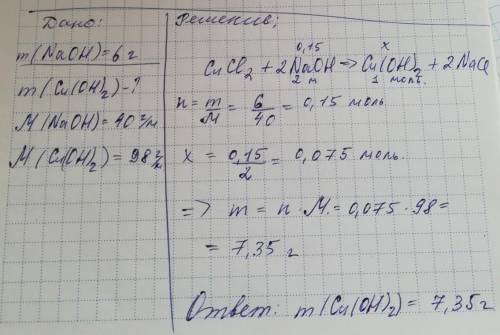 Дано:
m(NaOH)=6 г
m(Cu(OH)₂)-?
M(NaOH)=40 г/м
M(Cu(OH)₂)=98 г/м
Решение;
0,15 x
CuCl₂ + 2NaOH => Cu(OH)₂ + 2NaCl
2 м 1 моль.
n = m/M = 6/40 = 0,15 моль
x = 0,15/2 = 0,075 моль.
=> m = n · M = 0,075 · 98 =
= 7,35 г
Ответ: m(Cu(OH)₂) = 7,35 г